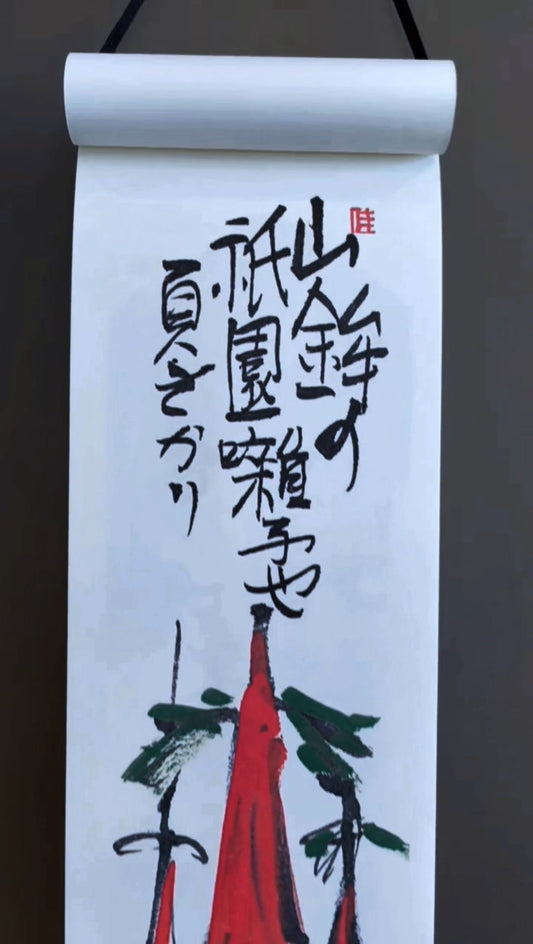 山鉾の
祇園囃子や
夏さかり